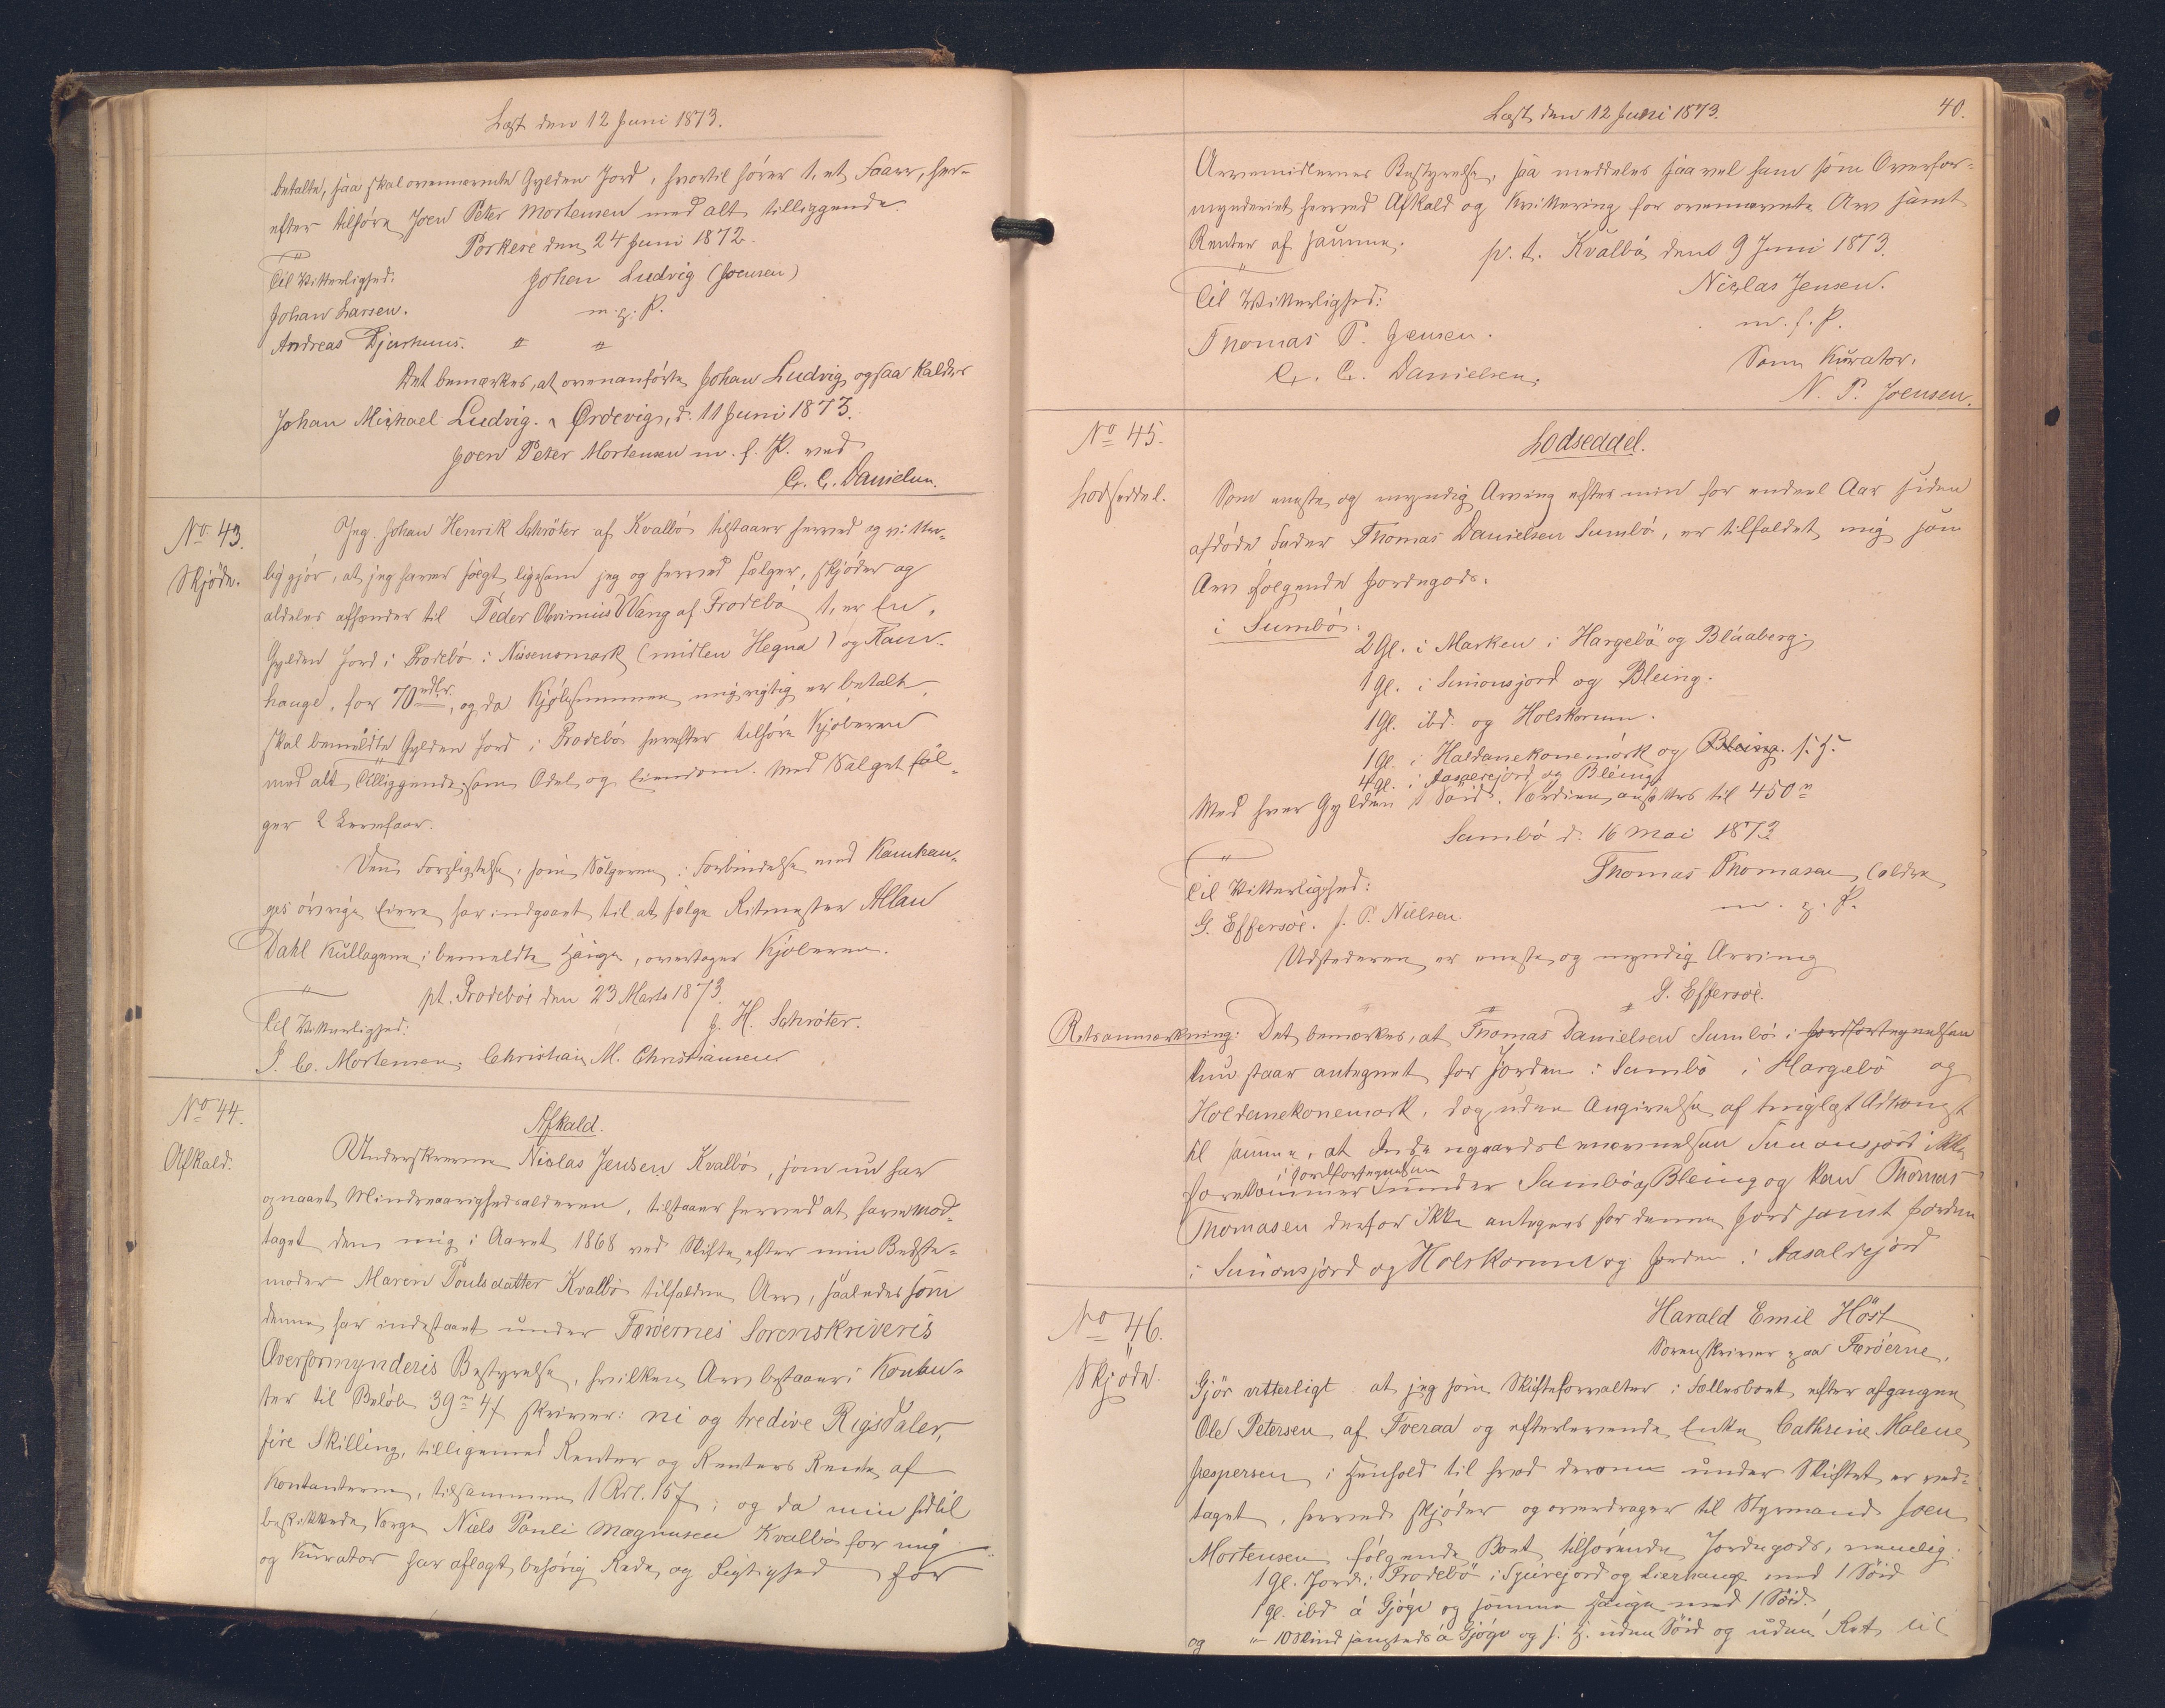 Læst den 12 Juni 1873.
betalte, saa skal ovennævnte Gylden Jord, hvortil hører 1, et Faar, her-
efter tilhøre Joen Peter Mortensen med alt tilliggende.
Porkere den 24 Juni 1872.
Til Vitterlighed:
Johan Ludvig (Joensen)
Johan Larsen.
m. p. P.
Andreas Djurhuus. " "
Det bemærkes, at ovenanførte Johan Ludvig ogsaa kaldes
Johan Michael Ludvig. Ørdevig, d. 11 Juni 1873.
Joen Peter Mortensen m. f. P. ved
C. C. Danielsen.
No 43.
Skjøde.
Jeg Johan Henrik Schröter af Kvalbø tilstaaer herved og vitter-
liggjør, at jeg haver solgt ligesom jeg og herved sælger, skjøder og
aldeles afhænder til Peder Obvinius Wang af Frodebø 1, en En,
Gylden Jord i Frodebø i Nissensmark (midlen Hegna) og Kam-
hauge, for 70 rdlr., og da Kjøbesummen mig rigtig er betalt,
skal bemeldte Gylden Jord i Frodebø herefter tilhøre Kjøberen
med alt Tilliggende som Odel og Eiendom. Med Salget føl-
ger 2 Leiefaar.
Den Forpligtelse, som Sælgeren i Forbindelse med Kamhau-
ges øvrige Eiere har indgaaet til at sælge Ritmester Allan
Dahl Kullagene i bemeldte Hauge, overtager Kjøberen.
pt. Frodebø den 23 Marts 1873.
Til Vitterlighed:
J. H. Schröter.
P. C. Mortensen, Christian M. Christiansen
No 44.
Afkald.
Afkald.
Underskrevne Niclas Jensen Kvalbø, som nu har
opnaaet Mindreaarighedsalderen, tilstaaer herved at have mod-
taget den mig i Aaret 1868 ved Skifte efter min Bedste-
moder Maren Poulsdatter Kvalbø tilfaldne Arv, saaledes som
denne har indestaaet under Færøernes Sorenskriveris
Overformynderis Bestyrelse, hvilken Arv bestaaer i Kontan-
ter til Beløb 39 m 4 f skriver: ni og tredive Rigsdaler,
fire Skilling, tilligemed Renter og Renters Rente af
Kontanterne, tilsammen 1 Rd. 15 f; og da min hidtil
beskikkede Værge Niels Pauli Magnusen Kvalbø for mig
og Kurator har aflagt behørig Rede og Rigtighed for
Læst den 12 Juni 1873.
40.
Arvemidlernes Bestyrelse, saa meddeles saavel ham som Overfor-
mynderiet herved Afkald og Kvittering for ovennævnte Arv samt
Renter af samme.
p. t. Kvalbø den 9 Juni 1873.
Niclas Jensen.
m. f. P.
Til Vitterlighed:
Thomas P. Jensen.
C. C. Danielsen.
Som Kurator.
N. P. Joensen.
No 45.
Lodseddel.
Lodseddel.
Som eneste og myndig Arving efter min for endeel Aar siden
afdøde Fader Thomas Danielsen Sumbø, er tilfaldet mig som
Arv følgende Jordegods.
i Sumbø:
2 Gl. i Marken i Hargebø og Bláaberg.
1 gl. i Simonsjord og Bleing.
1 Gl. ibd. og Holskorum.
1 Gl. i Haldanekonemørk og Bleing. s. H.
4 gl. i Aasalrejord og Bleing.
Med hver Gylden 1 Söid. Værdien ansættes til 450 m
Sumbø d. 16 Mai 1873
Til Vitterlighed:
Thomas Thomasen, (ældre
G. Effersøe. J. P. Nielsen.
m. p. P.
Udstederen er eneste og myndig Arving
G. Effersøe.
Retsanmærkning: Det bemærkes, at Thomas Danielsen Sumbø i Jordfortegnelsen
kun staar antegnet for Jorden i Sumbø i Hargebø og
Holdanekonemark, dog uden Angivelse af tinglæst Adkomst
til samme, at
forekommer i Jordfortegnelsen under Sumbø og Bleing og kan Thomas
Thomasen derfor ikke antegnes for denne Jord samt Jorden
i Simonsjord og Holskorum og Jorden i Aasalrejord
No 46.
Skjøde.
Harald Emil Höst
Sorenskriver paa Færøerne,
Gjør vitterligt at jeg som Skifteforvalter i Fællesboet efter afgangne
Ole Petersen af Tveraa og efterlevende Enke Cathrine Malene
Jespersen i Henhold til hvad derom under Skiftet er ved-
taget, herved skjøder og overdrager til Styrmand Joen
Mortensen følgende Boet tilhørende Jordegods, nemlig:
1 gl. Jord i Frodebø i Spurejord og Lierhauge med 1 Söid
1 gl. ibd á Gjógv og samme Hauge med 1 Söid.
og " 10 Skind sammesteds á Gjógv og s. H. uden Söid og uden Ret til